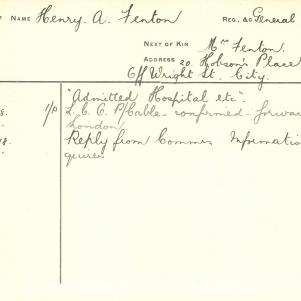 NAME Henry. A. Fenton REG. &C. General
NEXT OF KIN Mrs Fenton.
ADDRESS 20. Hobson's Place
Off Wright St. City.
"Admitted Hospital etc".
8. 1/P L.C.C. P/Cable - confirmed - forward
London
18. Reply from Commer Informatio
quires